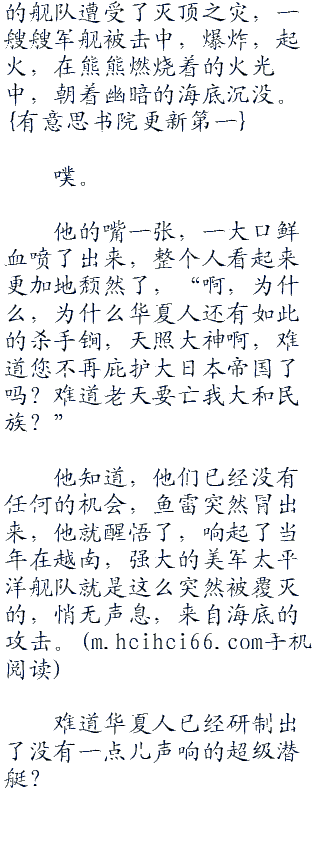 的舰队遭受了灭顶之灾，一
艘艘军舰被击中，爆炸，起
火，在熊熊燃烧着的火光
中，朝着幽暗的海底沉没。
{有意思书院更新第一}
噗。
他的嘴一张，一大口鲜
血喷了出来，整个人看起来
更加地颓然了，“啊，为什
么，为什么华夏人还有如此
的杀手锏，天照大神啊，难
道您不再庇护大日本帝国了
吗？难道老天要亡我大和民
族？”
他知道，他们已经没有
任何的机会，鱼雷突然冒出
来，他就醒悟了，响起了当
年在越南，强大的美军太平
洋舰队就是这么突然被覆灭
的，悄无声息，来自海底的
攻击。(m.hcihci66.com手机
阅读)
难道华夏人已经研制出
了没有一点儿声响的超级潜
艇？